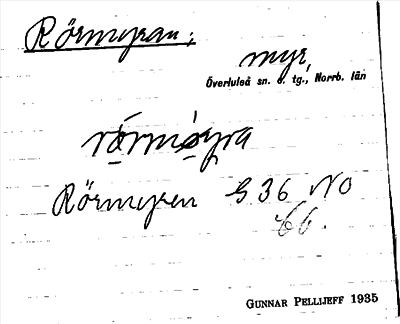 Rörmyran;
myr,
Överluleå sn. o. tg., Norrb. län
rörmöyra
Rörmyren G 36 NO
66.
GUNNAR PELLIJEFF 1935